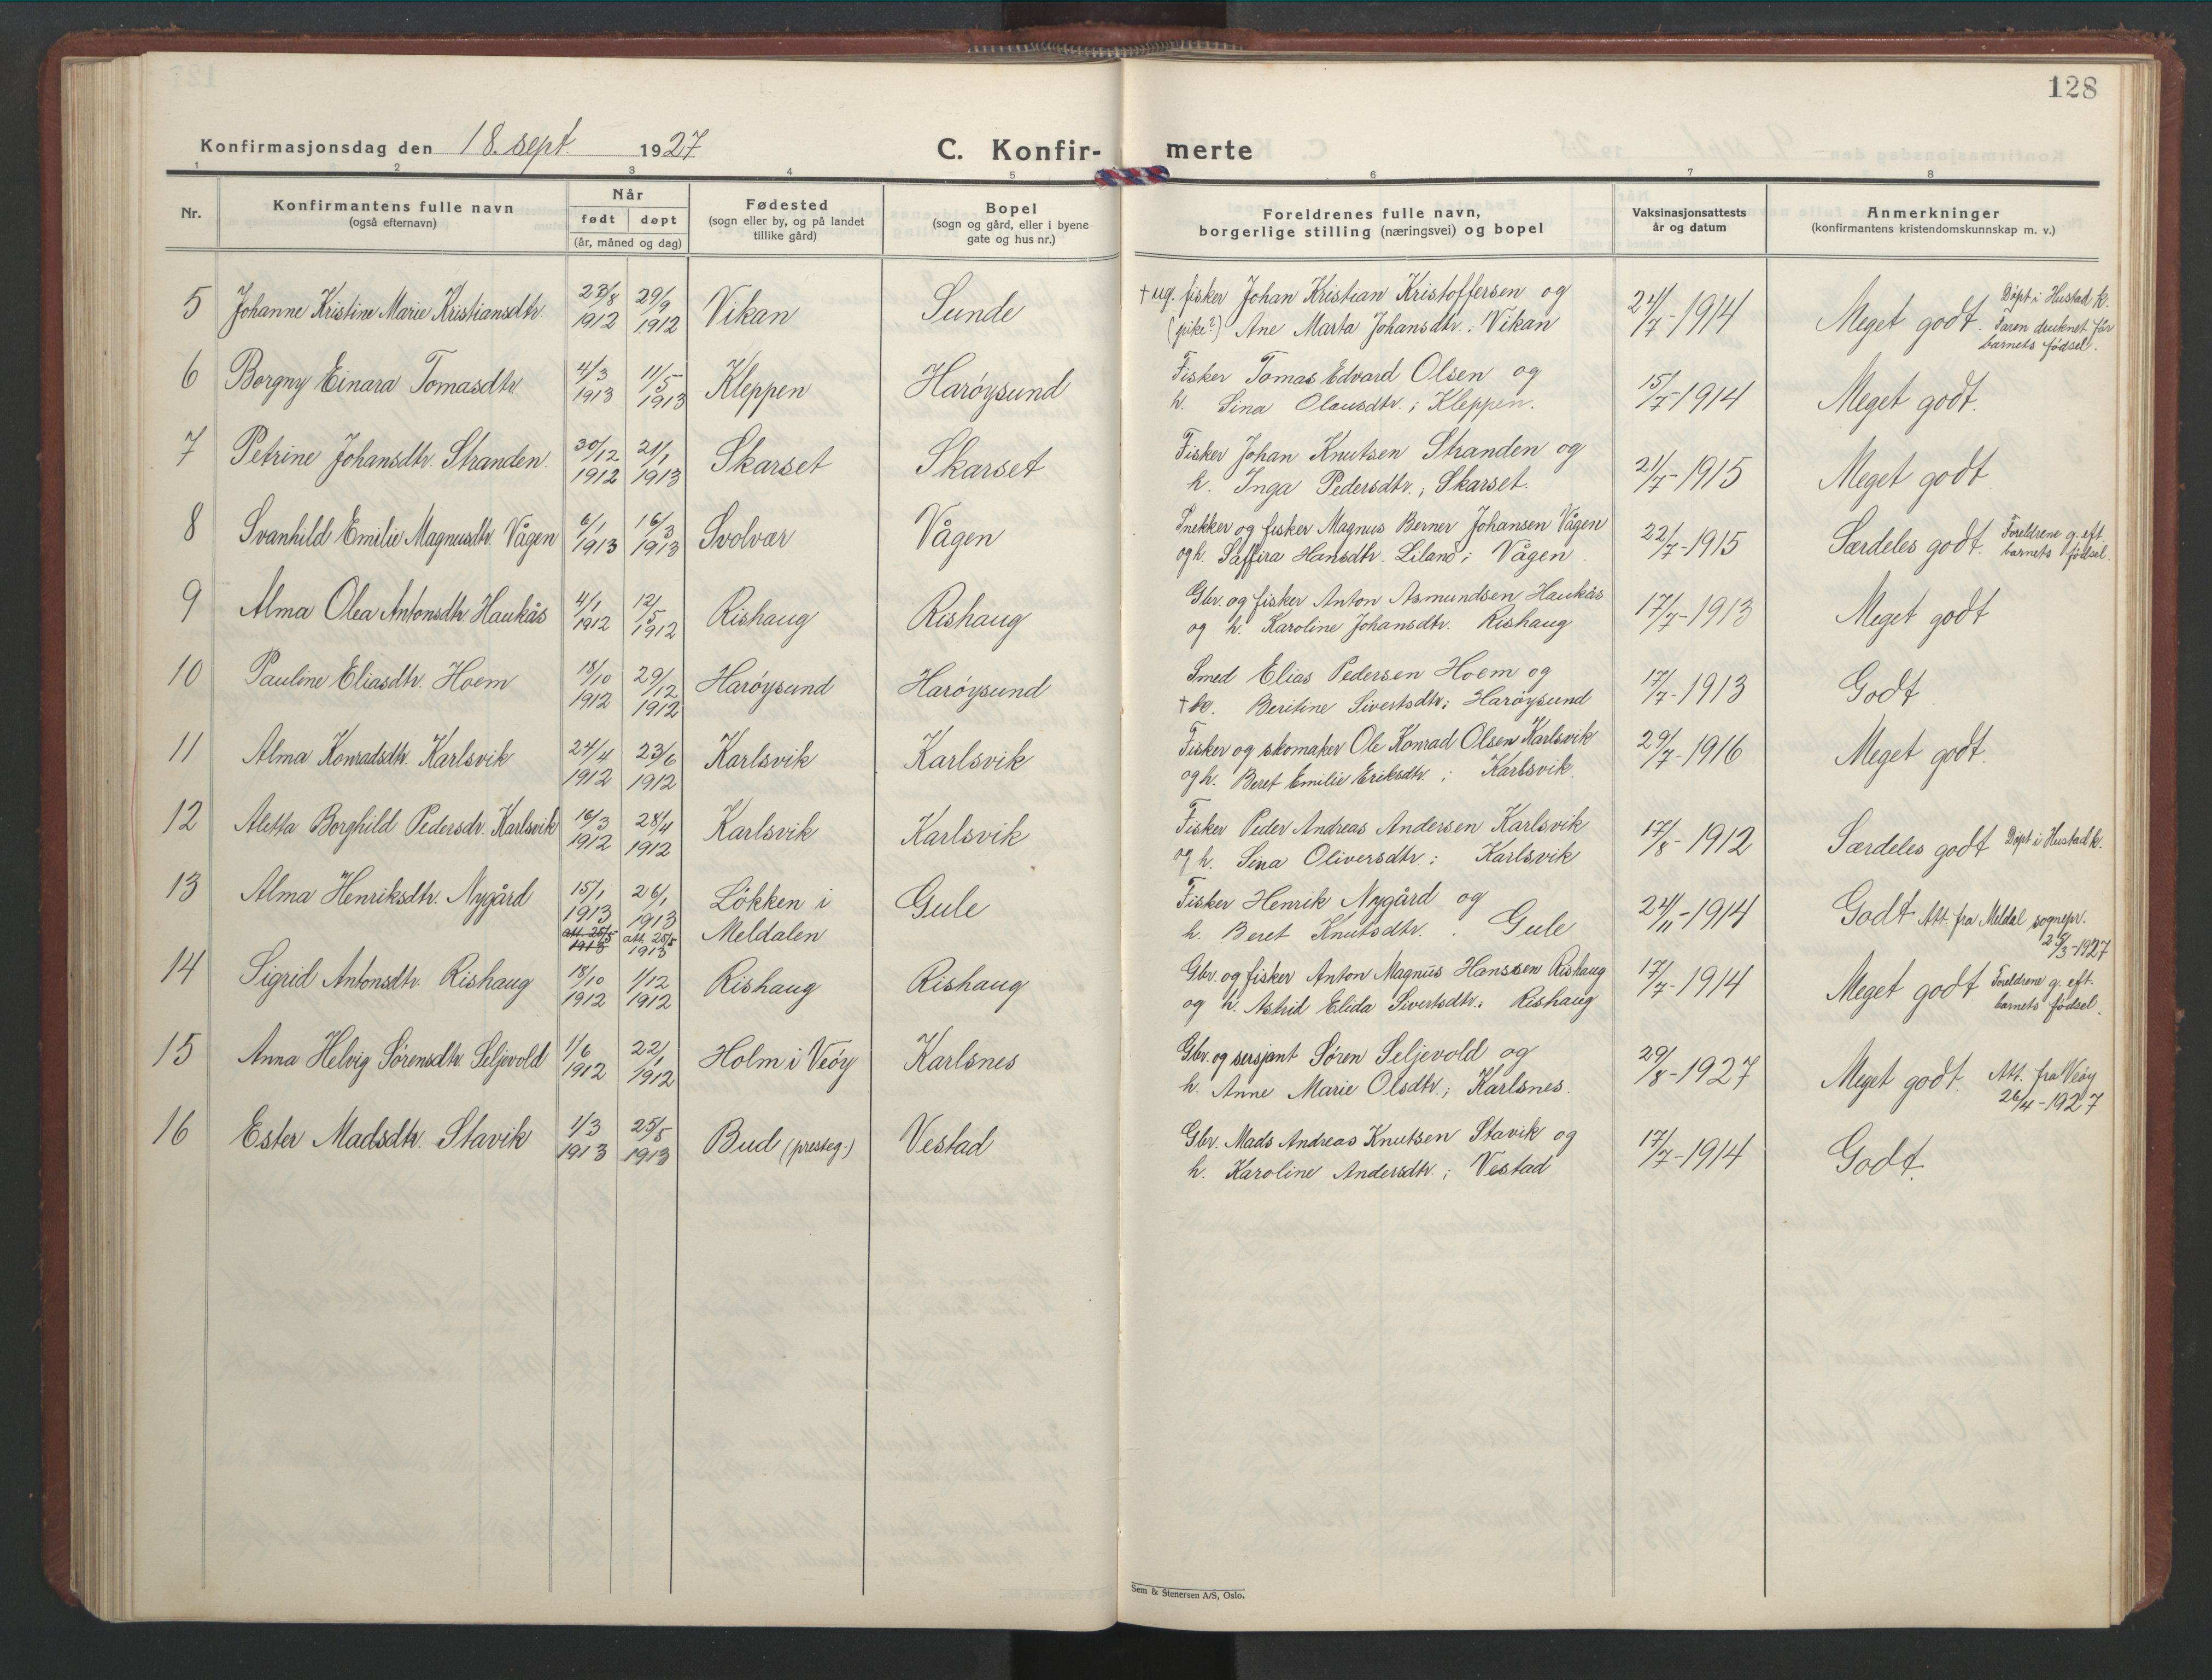 128
Konfirmasjonsdag den 18. sept. 1927
C. Konfir- merte
1 2 3 4 5 6 7 8
Nr.
Konfirmantens fulle navn
(også efternavn)
Når
født døpt
(år, måned og dag)
Fødested
(sogn eller by, og på landet
tillike gård)
Bopel
(sogn og gård, eller i byene
gate og hus nr.)
Foreldrenes fulle navn,
borgerlige stilling (næringsvei) og bopel
Vaksinasjonsattests
år og datum
Anmerkninger
(konfirmantens kristendomskunnskap m. v.)
5 Johanne Kristine Marie Kristiansdtr. 27/8 1912 29/9 1912 Vikan Sunde
† ug. fisker Johan Kristian Kristoffersen og
(pike?) Ane Marta Johansdtr.: Vikan
24/7-1914 Meget godt. Døpt i Hustad k.
Faren druknet før
barnets fødsel.
6 Borgny Einara Tomasdtr. 4/3 1913 11/5 1913 Kleppen Harøysund
Fisker Tomas Edvard Olsen og
h. Sina Olausdtr.; Kleppen.
15/7-1914 Meget godt.
7 Petrine Johansdtr. Stranden. 30/12 1912 21/1 1913 Skarset Skarset
Fisker Johan Knutsen Stranden og
h. Inga Pedersdtr.; Skarset.
21/7-1915 Meget godt
8 Svanhild Emilie Magnusdtr. Vågen 6/1 1913 16/3 1913 Svolvær Vågen
Snekker og fisker Magnus Berner Johansen Vågen
og h. Saffira Hansdtr. Liland; Vågen.
22/7-1915 Særdeles godt. Foreldrene g. eft.
barnets fødsel.
9 Alma Olea Antonsdtr. Haukås 4/1 1912 12/5 1912 Rishaug Rishaug
Gbr. og fisker Anton Asmundsen Haukås
og h. Karoline Johansdtr. Rishaug
17/7-1913 Meget godt
10 Pauline Eliasdtr. Hoem 18/10 1912 29/12 1912 Harøysund Harøysund
Smed Elias Pedersen Hoem og
† h. Beritine Sivertsdtr; Harøysund
17/7-1913 Godt
11 Alma Konradsdtr. Karlsvik 24/4 1912 23/6 1912 Karlsvik Karlsvik
Fisker og skomaker Ole Konrad Olsen Karlsvik
og h. Beret Emilie Eriksdtr.; Karlsvik.
29/7-1916 Meget godt.
12 Aletta Borghild Pedersdr. Karlsvik 16/3 1912 28/4 1912 Karlsvik Karlsvik
Fisker Peder Andreas Andersen Karlsvik
og h. Sina Oliversdtr.: Karlsvik
17/8-1912 Særdeles godt Døpt i Hustad k.
13 Alma Henriksdtr. Nygård 15/1 1913 att. 25/5 1913 26/1 1913 att. 25/5 1913 Løkken i
Meldalen Gule
Fisker Henrik Nygård og
h. Beret Knutsdtr. . Gule
24/11-1914 Godt Att. fra Meldal sognepr.
25/3-1927
14 Sigrid Antonsdtr. Rishaug 18/10 1912 1/12 1912 Rishaug Rishaug
Gbr. og fisker Anton Magnus Hanssen Rishaug
og h. Astrid Elida Sivertsdtr.: Rishaug
17/7-1914 Meget godt Foreldrene g. eft.
barnets fødsel.
15 Anna Helvig Sørensdtr. Seljevold 1/6 1912 22/1 1912 Holm i Veøy Karlsnes
Gbr. og sersjant Søren Seljevold og
h. Anne Marie Olsdtr.; Karlsnes.
29/8-1927 Meget godt. Att. fra Veøy
26/4-1927
16 Ester Madsdtr. Stavik 1/3 1913 25/5 1913 Bud (presteg.) Vestad
Gbr. Mads Andreas Knutsen Stavik og
h. Karoline Andersdtr.; Vestad
17/7-1914 Godt.
Sem & Stenersen A/S, Oslo.